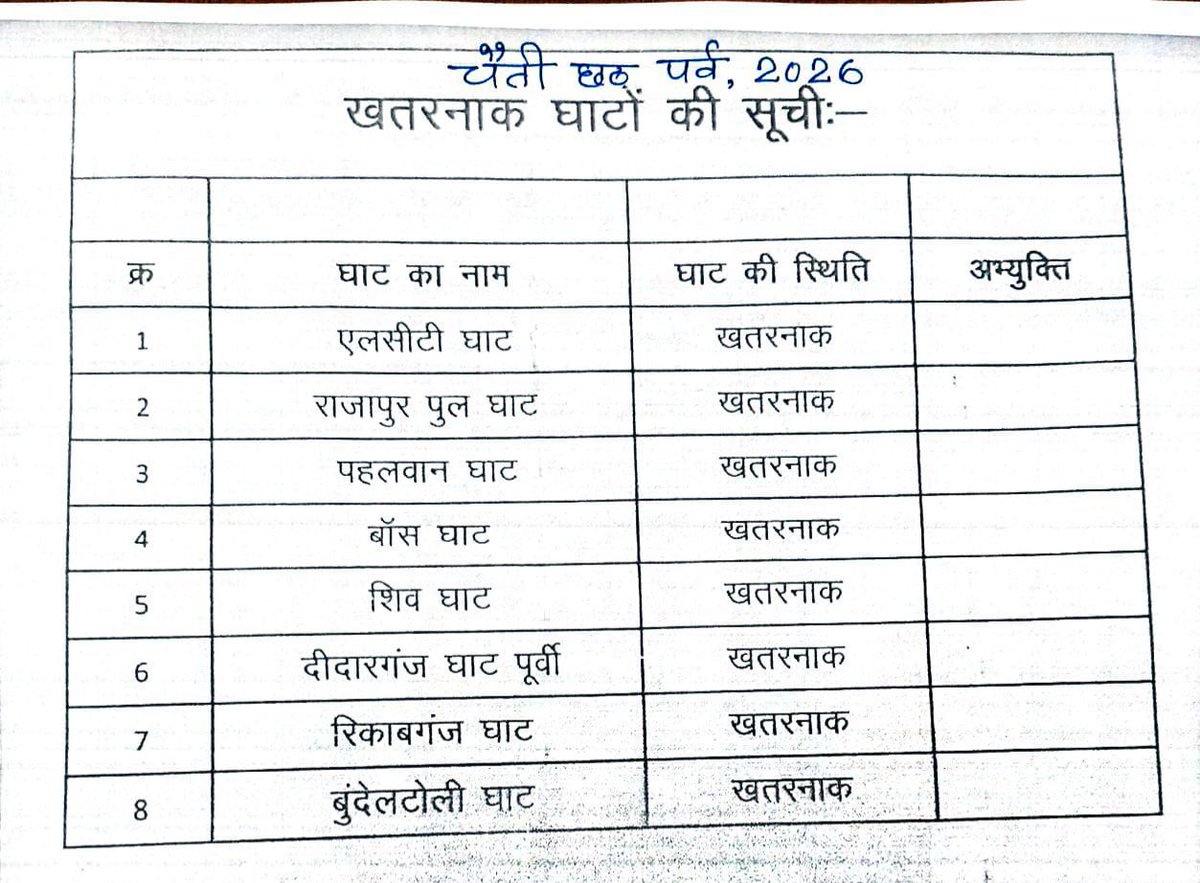 चैती छठ पर्व, 2026
खतरनाक घाटों की सूचीः–
क्र घाट का नाम घाट की स्थिति अभ्युक्ति
1 एलसीटी घाट खतरनाक
2 राजापुर पुल घाट खतरनाक
3 पहलवान घाट खतरनाक
4 बॉस घाट खतरनाक
5 शिव घाट खतरनाक
6 दीदारगंज घाट पूर्वी खतरनाक
7 रिकाबगंज घाट खतरनाक
8 बुंदेलटोली घाट खतरनाक